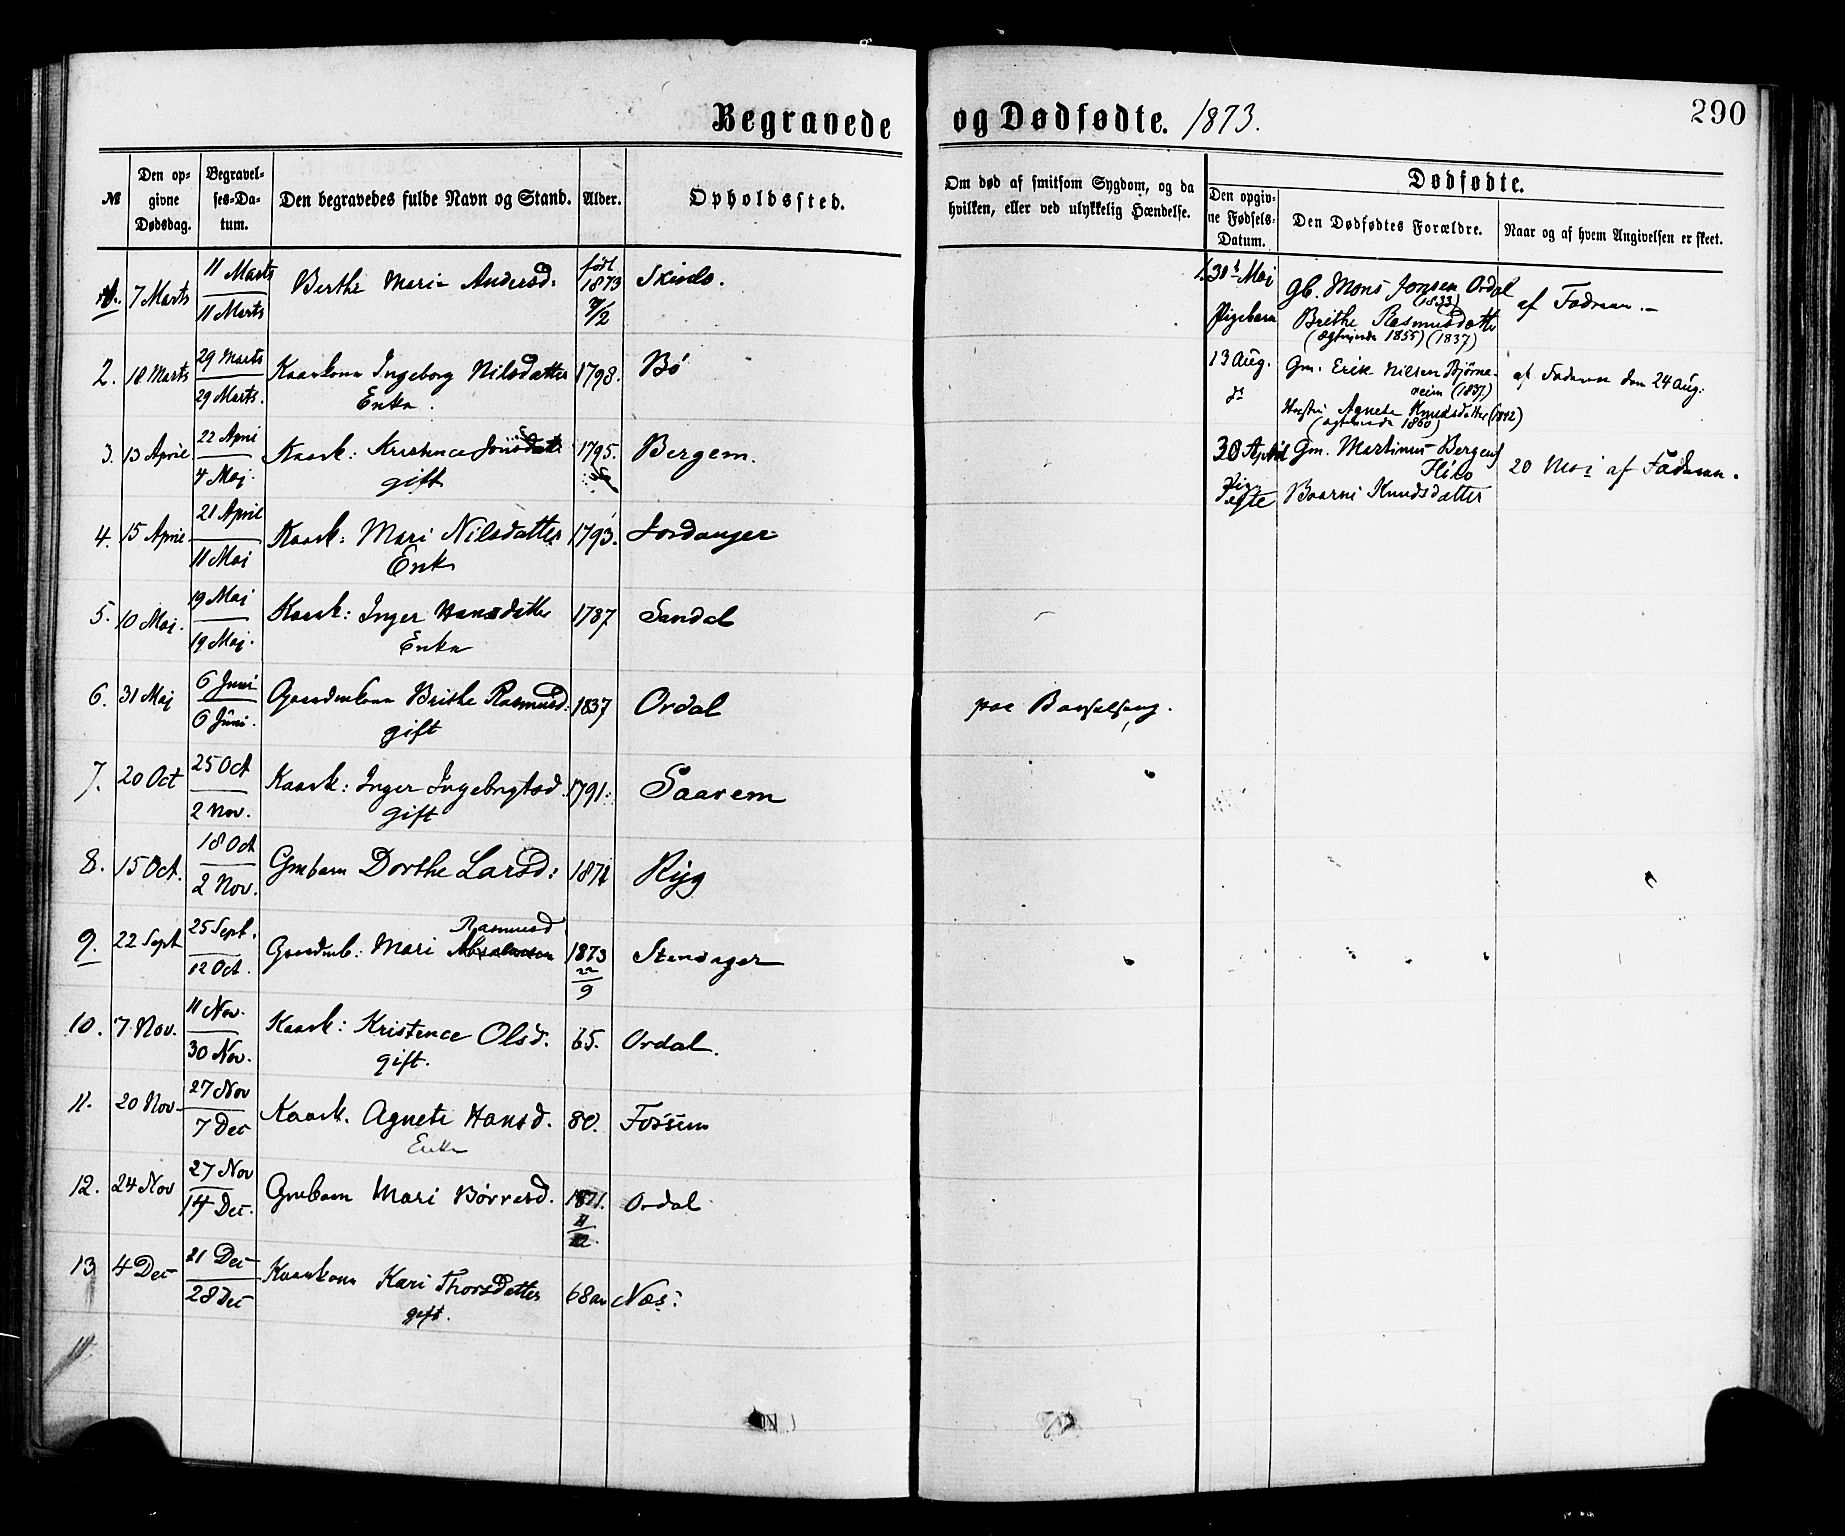 Begravede og Dødfødte. 1873.
290
№
Den opgivne Dødsdag.
Begravelses-Datum.
Den begravedes fulde Navn og Stand.
Alder.
Opholdssted.
Om død af smitsom Sygdom, og da hvilken, eller ved ulykkelig Hændelse.
Dødfødte.
Den opgivne Fødsels-Datum.
Den Dødfødtes Forældre.
Naar og af hvem Angivelsen er skeet.
1. 7 Marts 11 Marts 11 Marts Berthe Marie Andersd. født 1873 /2
2. 18 Marts 29 Marts 29 Marts. Kaarkona Ingeborg Nilsdatter 1798. Bø
Enka.
3. 13 April 22 April 4 Maj. Kaark: Kristence 1795. Bergem.
gift
4. 15 April 21 April 11 Maj Kaark: Mari Nilsdatter 1793. Jordanger
Enk
5. 10 Maj. 19 Maj 19 Maj. Kaark: Inger Hansdatter 1787 Sandal
Enka
6. 31 Maj 6 Juni 6 Juni. Gaardmkona Brithe Rasmusd: 1837 Ordal paa Barselseng.
gift
7. 20 Oct 25 Oct 2 Nov. Kaark: Inger Ingebrigtsd. 1791. Saarem
gift
8. 15 Oct. 18 Oct 2 Nov. Gmbarn Dorthe Larsd: 1871 Ryg
9. 22 Sept 25 Sept. 12 Oct. Gaardmb. Mari Rasmusd 1873 22/9 Stensager
10. 7 Nov. 11 Nov. 30 Nov. Kaark: Kristence Olsd. 65. Ordal.
gift.
11. 20 Nov. 27 Nov 7 Dec Kaark. Agnete Hansd. 80. Fossem
Enka
12. 24 Nov 27 Nov 14 Dec. Gmbarn Mari Børresd. 1871. Ordal
13 4 Dec 21 Dec 28 Dec Kaarkona Kari Thorsdatter 68 Næs:
gift.
14.
1. 31 Maj Gb. Mons Jonsen Ordal af Faderen.
(1833)
Pigebarn Brithe Rasmusdatter
(Ægteviede 1855) (1837)
13 Aug. Gm. Erik Nilsen Bjørnareim (1837) af Faderen den 24 Aug.
Hustru Agnete Knudsdatter (1842)
(ægteviede 1860)
30 April Gm. Martinus Bergens 20 Maj af Faderen.
Baarni Knudsdatter